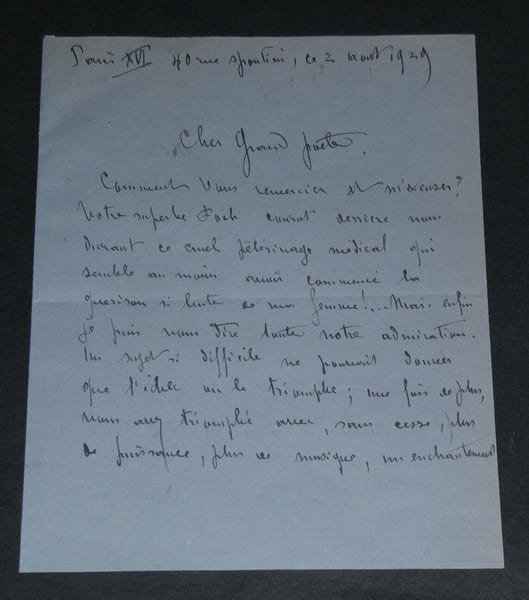 Paris XVI 40 rue Spontini, ce 2 août 1929
Cher Grand poète,
Comment vous remercier et m'excuser?
Votre superbe Foch courut derrière nous
Durant ce cruel pèlerinage médical qui
semble au moins avoir commencé la
guérison si lente de ma femme!... Mais enfin
je puis vous dire toute notre admiration.
Un sujet si difficile ne pouvait donner
que l'échec ou le triomphe; une fois de plus,
vous avez triomphé avec, sans cesse, plus
de puissance, plus de musique, un enchantement